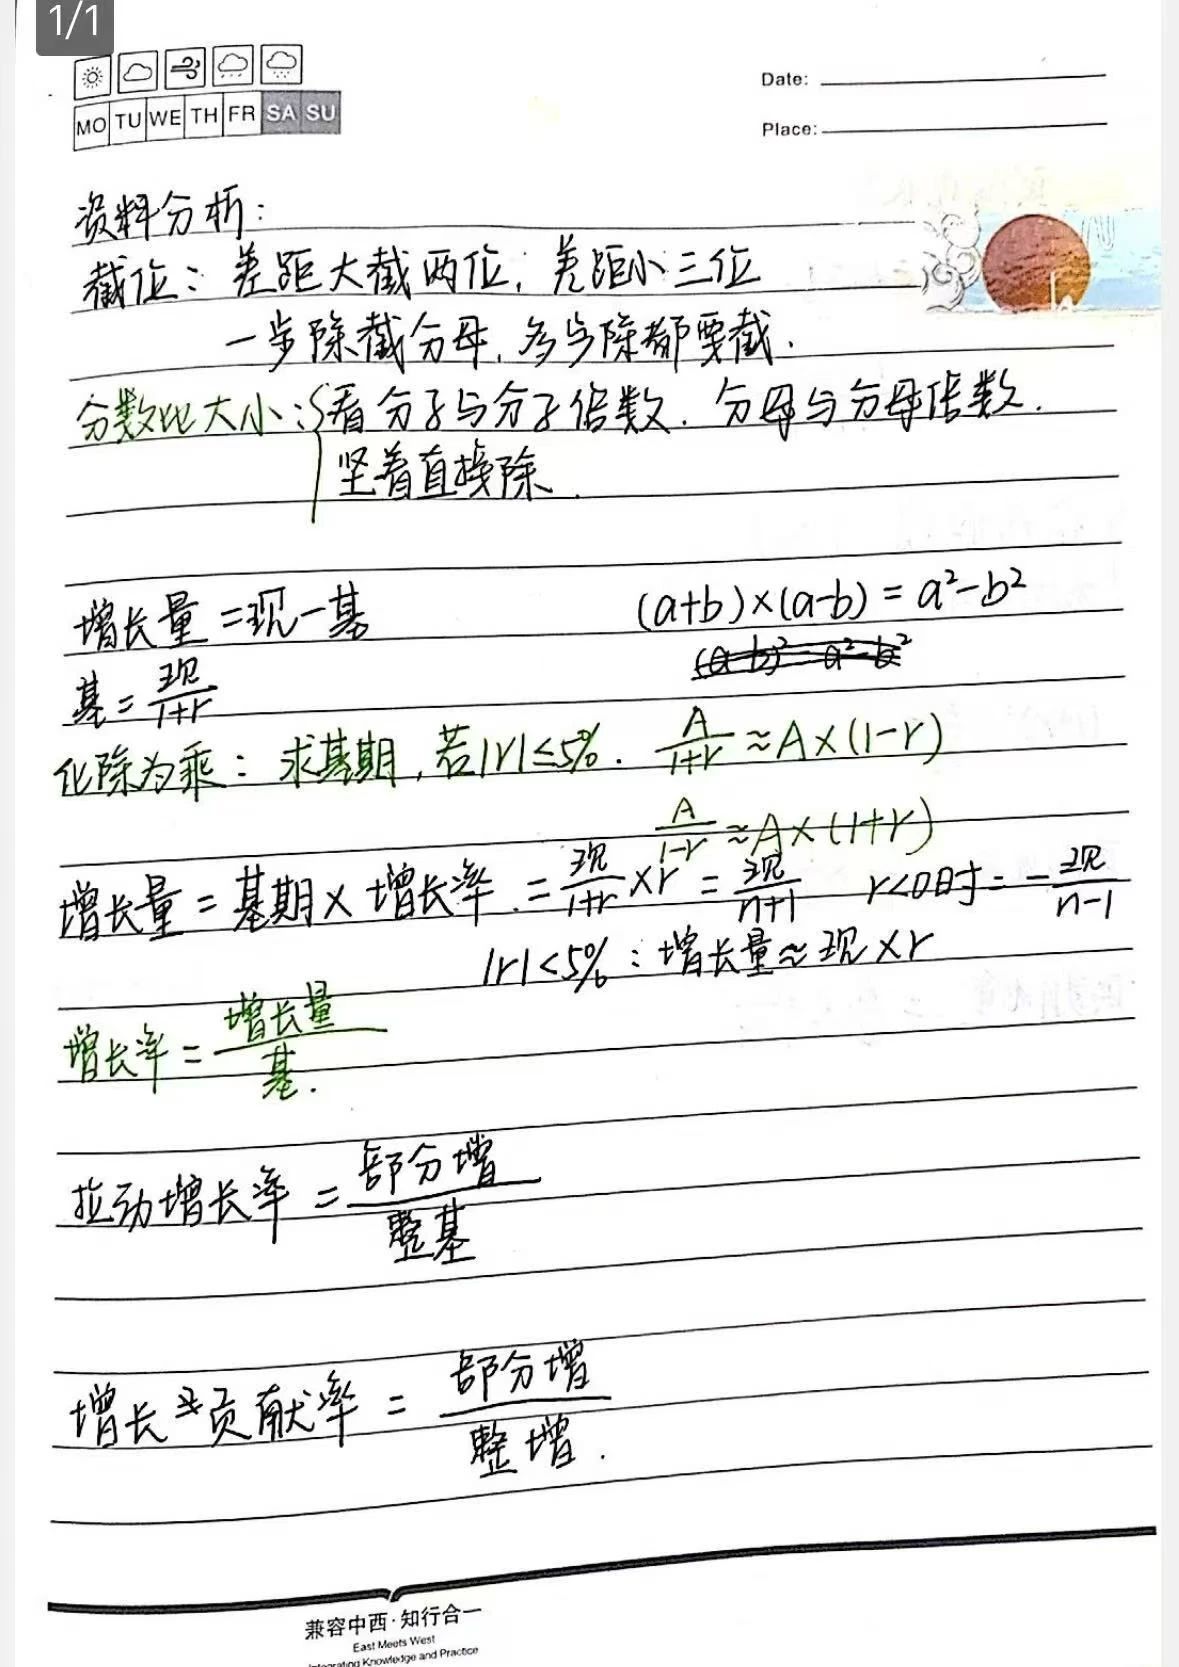 1/1
MO TU WE TH FR SA SU
Date:
Place:
资料分析：
截位：差距大截两位，差距小三位
一步除截分母，多步除都要截．
分数比大小：{看分子与分子倍数．分母与分母倍数．
竖着直接除．
增长量＝现－基 (a+b)×(a-b)＝a²-b²
基＝现/1+r
化除为乘：求基期，若|r|≤5%． A/1+r≈A×(1-r)
A/1-r≈A×(1+r)
增长量＝基期×增长率．＝现/1+r×r＝现/n+1 r<0时＝-现/n-1
|r|<5%：增长量≈现×r
增长率＝增长量/基．
拉动增长率＝部分增/整基
增长贡献率＝部分增/整增．
兼容中西·知行合一
East Meets West
Integrating Knowledge and Practice